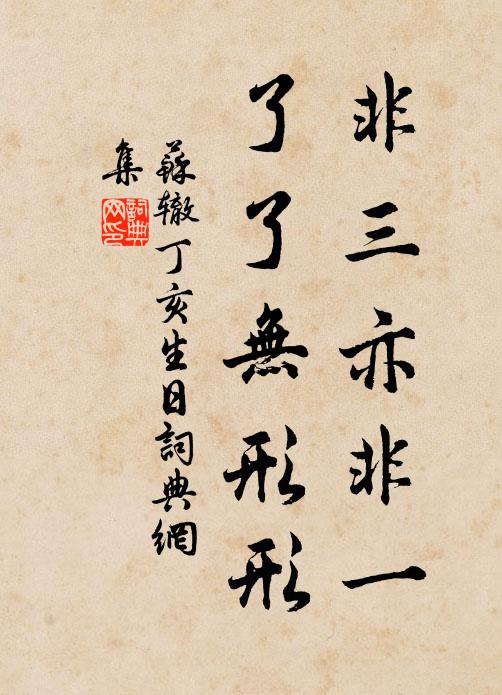 非三亦非一
了了無形形
蘇辙丁亥生日詞典網
集
詞典网印